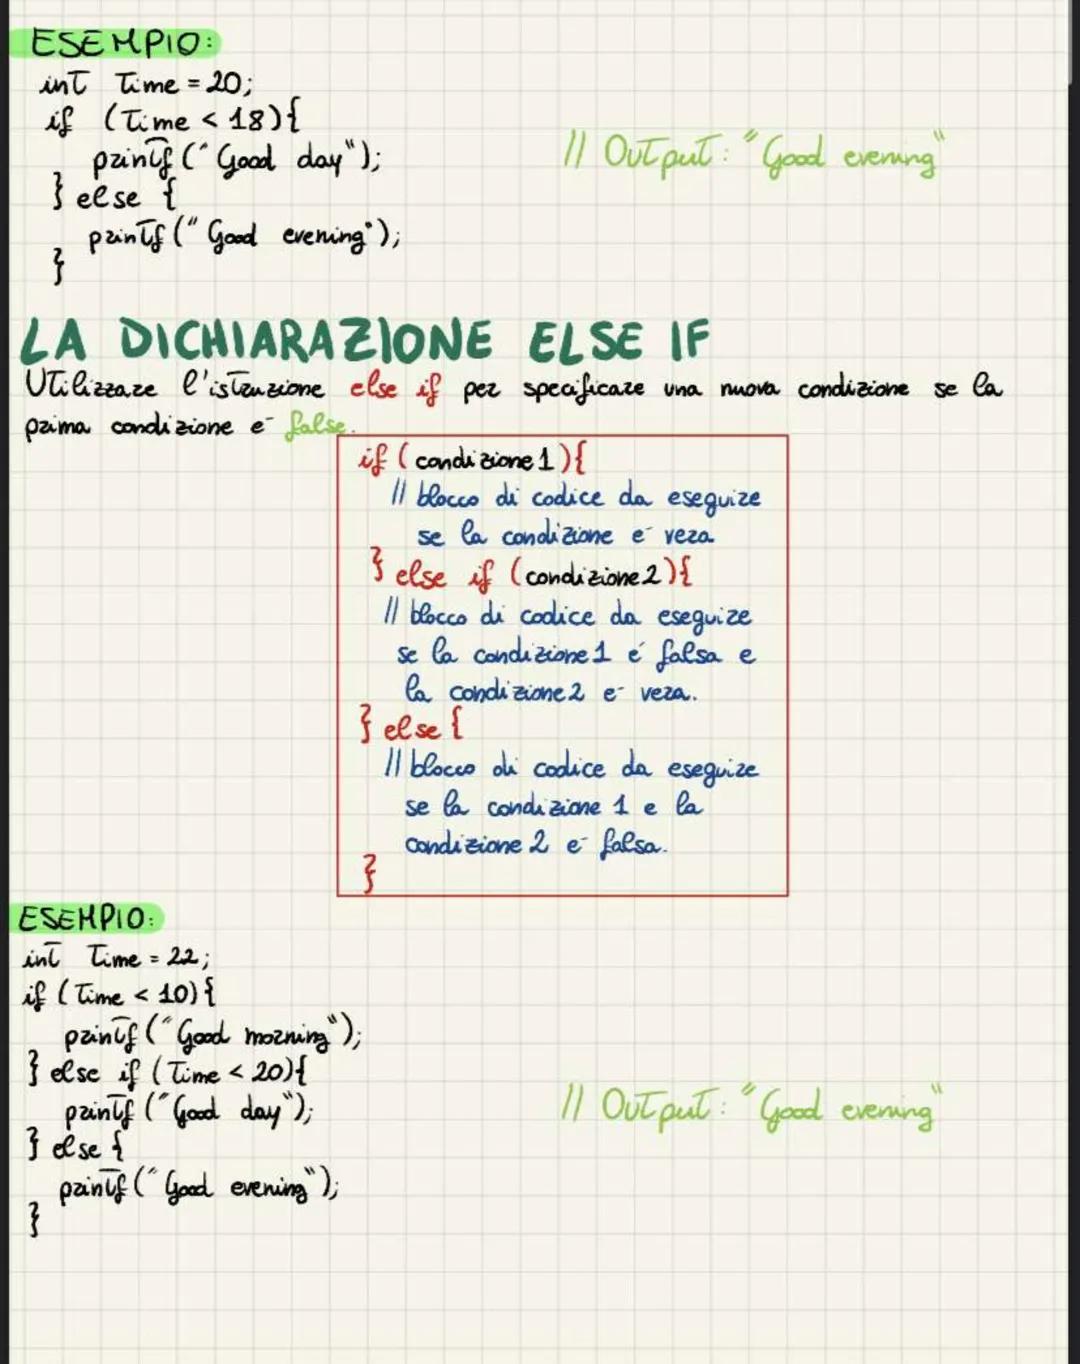 ESEMPIO:
int Time = 20;
if (Time < 18){
printf("Good day");
// Output: "Good evening"
} else {
printf("Good evening");
}
LA DICHIARAZIONE ELSE IF
Utilizzare l'istruzione else if per specificare una nuova condizione se la
prima condizione e- false.
if (condizione1){
// blocco di codice da eseguire
se la condizione e- vera
} else if (condizione2){
// blocco di codice da eseguire
se la condizione1 é falsa e
la condizione2 e- vera.
} else {
// blocco di codice da eseguire
se la condizione 1 e la
condizione 2 e- falsa.
}
ESEMPIO:
int Time = 22;
if (Time < 10){
printf("Good morning");
} else if (Time < 20){
printf("Good day");
// Output: "Good evening"
} else {
printf("Good evening");
}